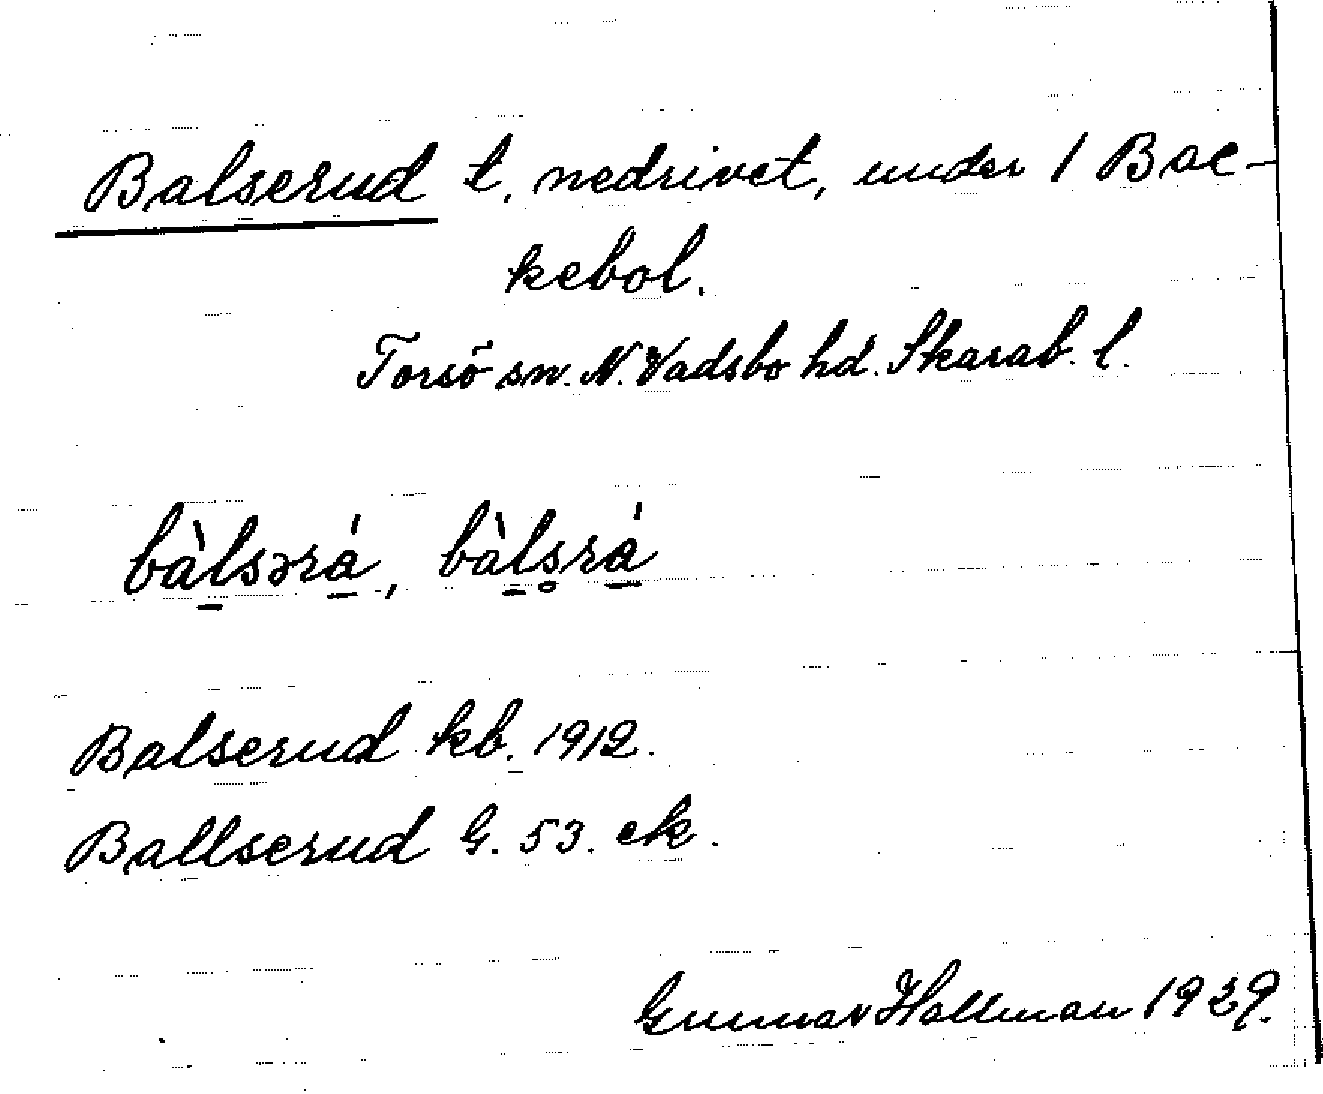 Balserud t. nedrivet, under 1 Bac-
kebol.
Torsö sn. N. Vadsbo hd. Skarab. l.
bàl̠sərá̠, bàl̠s̥rá̠
Balserud kb. 1912.
Ballserud G. 53. ek.
Gunnar Hallman 1929.